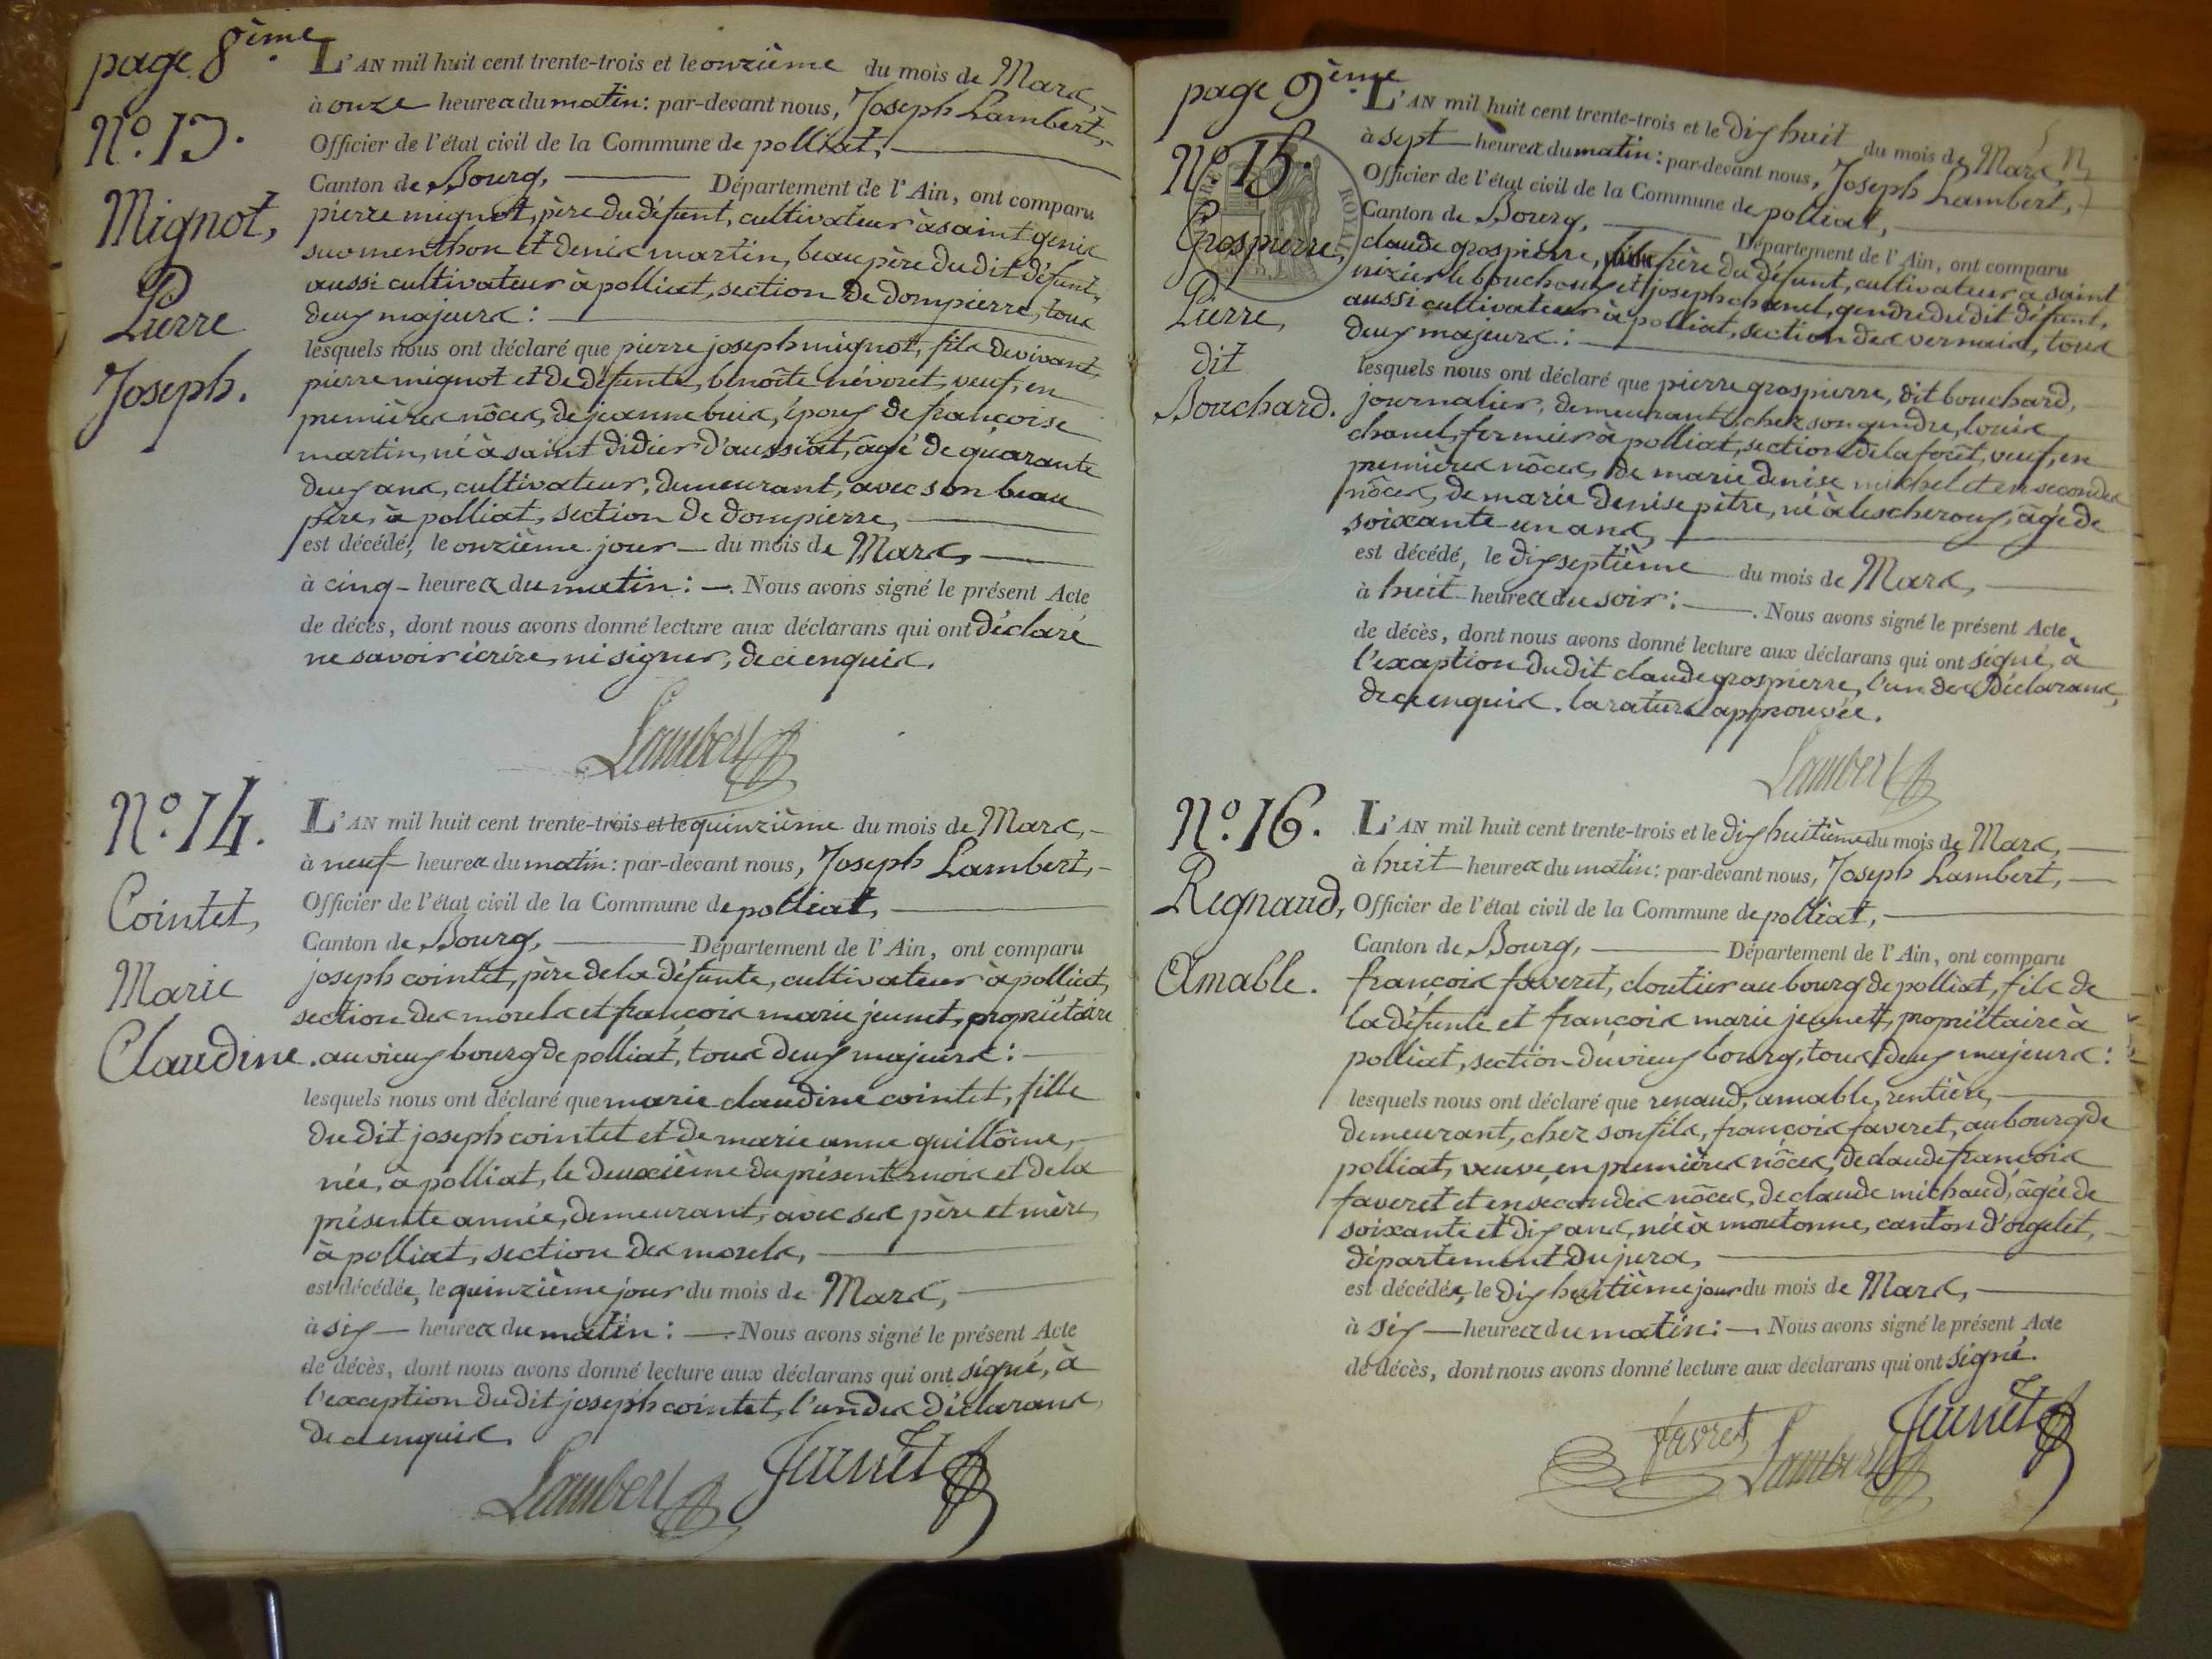 page 8ème.
N.° 13.
Mignot,
Pierre
Joseph.
L'AN mil huit cent trente-trois et le onzième du mois de Mars,
à onze heures du matin : par-devant nous, Joseph Lambert,
Officier de l'état civil de la Commune de polliat,
Canton de Bourg, Département de l'Ain, ont comparu
pierre mignot, père du défunt, cultivateur à saint genis
sur menthon et denis martin, beau père du dit défunt,
aussi cultivateur à polliat, section de dompierre, tous
deux majeurs :
lesquels nous ont déclaré que pierre joseph mignot, fils de vivant
pierre mignot et de défunte, benoîte névoret, veuf, en
premières nôces, de jeanne buis, époux de françoise
martin, né à saint didier d'aussiat, âgé de quarante
deux ans, cultivateur, demeurant, avec son beau
père, à polliat, section de dompierre,
est décédé, le onzième jour du mois de Mars,
à cinq heures du matin : Nous avons signé le présent Acte
de décès, dont nous avons donné lecture aux déclarans qui ont déclaré
ne savoir écrire, ni signer, de ce enquis.
Lambert
N.° 14.
Cointet,
Marie
Claudine.
L'AN mil huit cent trente-trois et le quinzième du mois de Mars,
à neuf heures du matin : par-devant nous, Joseph Lambert,
Officier de l'état civil de la Commune de polliat,
Canton de Bourg, Département de l'Ain, ont comparu
joseph cointet, père de la défunte, cultivateur à polliat,
section des morels et françois marie jeunet, propriétaire
au vieux bourg de polliat, tous deux majeurs :
lesquels nous ont déclaré que marie claudine cointet, fille
du dit joseph cointet et de marie anne guillôme,
née, à polliat, le deuxième du présent mois et de la
présente année, demeurant, avec ses père et mère,
à polliat, section des morels,
est décédée, le quinzième jour du mois de Mars,
à six heures du matin : Nous avons signé le présent Acte
de décès, dont nous avons donné lecture aux déclarans qui ont signé, à
l'exception du dit joseph cointet, l'un des déclarans,
de ce enquis.
Lambert Jeunet
page 9ème.
N.° 15.
Grospierre,
Pierre,
dit
Bouchard.
ROYAL
L'AN mil huit cent trente-trois et le dix huit du mois de Mars,
à sept heures du matin : par-devant nous, Joseph Lambert,
Officier de l'état civil de la Commune de polliat,
Canton de Bourg, Département de l'Ain, ont comparu
claude grospierre, frère du défunt, cultivateur à saint
nizier le bouchoux et joseph chanel, gendre du dit défunt,
aussi cultivateur à polliat, section des vernais, tous
deux majeurs :
lesquels nous ont déclaré que pierre grospierre, dit bouchard,
journalier, demeurant, chez son gendre, louis
chanel, fermier à polliat, section de la forêt, veuf, en
premières nôces, de marie denise michel et en secondes
nôces, de marie denise pitre, né à lescheroux, âgé de
soixante un ans,
est décédé, le dix septième du mois de Mars,
à huit heures du soir : Nous avons signé le présent Acte
de décès, dont nous avons donné lecture aux déclarans qui ont signé, à
l'exception du dit claude grospierre, l'un des déclarans,
de ce enquis. la rature approuvée.
Lambert
N.° 16.
Regnaud,
Amable.
L'AN mil huit cent trente-trois et le dix huitième du mois de Mars,
à huit heures du matin : par-devant nous, Joseph Lambert,
Officier de l'état civil de la Commune de polliat,
Canton de Bourg, Département de l'Ain, ont comparu
françois faveret, cloutier au bourg de polliat, fils de
la défunte et françois marie jeunet, propriétaire à
polliat, section du vieux bourg, tous deux majeurs :
lesquels nous ont déclaré que renaud, amable, rentière,
demeurant, chez son fils, françois faveret, au bourg de
polliat, veuve, en premières nôces, de claude françois
faveret et en secondes nôces, de claude michaud, âgée de
soixante et dix ans, née à moutonne, canton d'orgelet,
département du jura,
est décédée, le dix huitième jour du mois de Mars,
à six heures du matin : Nous avons signé le présent Acte
de décès, dont nous avons donné lecture aux déclarans qui ont signé.
favret Lambert Jeunet